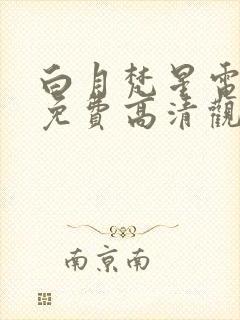 白月梵星電
免費高清觀
南京南